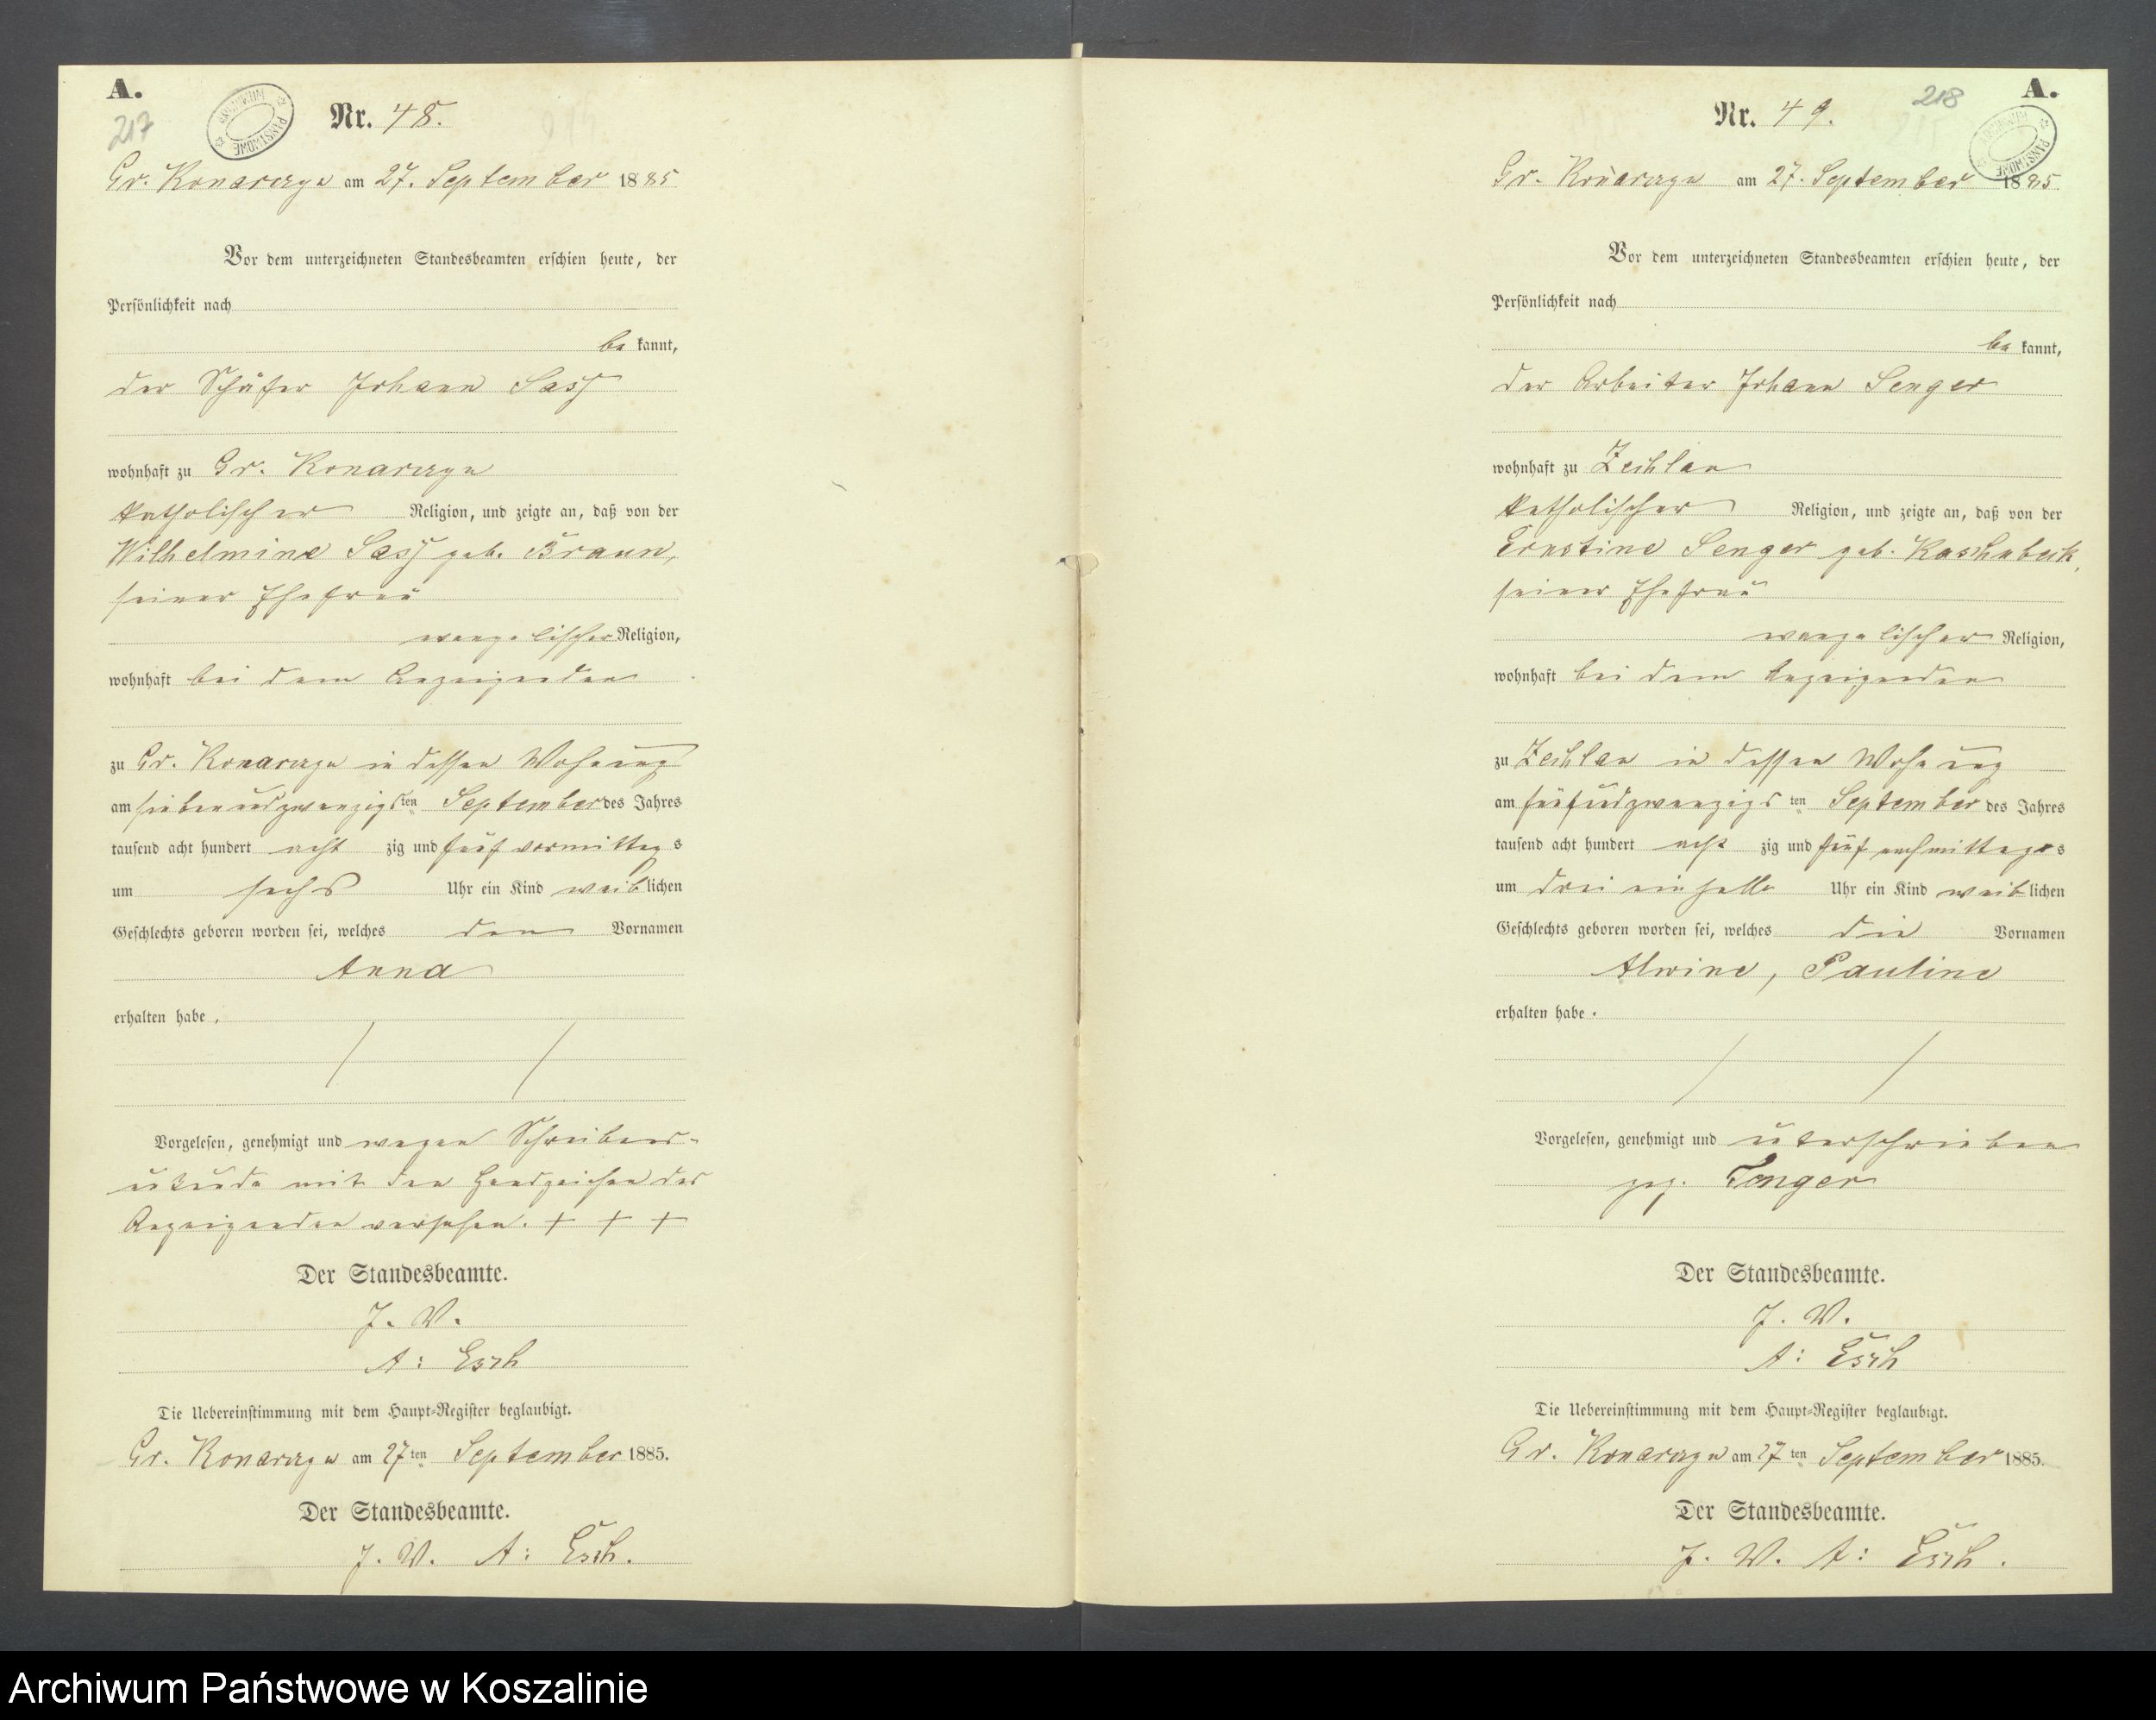 A.
217
Nr. 48.
Gr. Konarczyn am 27. September 1885
Vor dem unterzeichneten Standesbeamten erschien heute, der
Persönlichkeit nach
be kannt,
der Schäfer Johann Sass
wohnhaft zu Gr. Konarczyn
katholischer Religion, und zeigte an, daß von der
Wilhelmine Sass geb. Braun,
seiner Ehefrau
evangelischer Religion,
wohnhaft bei dem Anzeigenden
zu Gr. Konarczyn in dessen Wohnung
am siebenundzwanzigsten September des Jahres
tausend acht hundert acht zig und fünf vormittags
um sechs Uhr ein Kind weiblichen
Geschlechts geboren worden sei, welches den Vornamen
Anna
erhalten habe.
Vorgelesen, genehmigt und wegen Schreibens-
unkunde mit den Handzeichen des
Anzeigenden versehen. + + +
Der Standesbeamte.
J. V.
A: Esch
Die Uebereinstimmung mit dem Haupt-Register beglaubigt.
Gr. Konarczyn am 27ten September 1885.
Der Standesbeamte.
J. V. A: Esch.
A.
218
Nr. 49.
Gr. Konarczyn am 27. September 1885
Vor dem unterzeichneten Standesbeamten erschien heute, der
Persönlichkeit nach
be kannt,
der Arbeiter Johann Senger
wohnhaft zu Zechlau
katholischer Religion, und zeigte an, daß von der
Ernstine Senger geb. Kaschubeck,
seiner Ehefrau
evangelischer Religion,
wohnhaft bei dem Anzeigenden
zu Zechlau in dessen Wohnung
am fünfundzwanzigsten September des Jahres
tausend acht hundert acht zig und fünf nachmittags
um drei ein halb Uhr ein Kind weiblichen
Geschlechts geboren worden sei, welches die Vornamen
Alwine, Pauline
erhalten habe.
Vorgelesen, genehmigt und unterschrieben
gez. Senger
Der Standesbeamte.
J. V.
A: Esch
Die Uebereinstimmung mit dem Haupt-Register beglaubigt.
Gr. Konarczyn am 27ten September 1885.
Der Standesbeamte.
J. V. A: Esch.
Archiwum Państwowe w Koszalinie